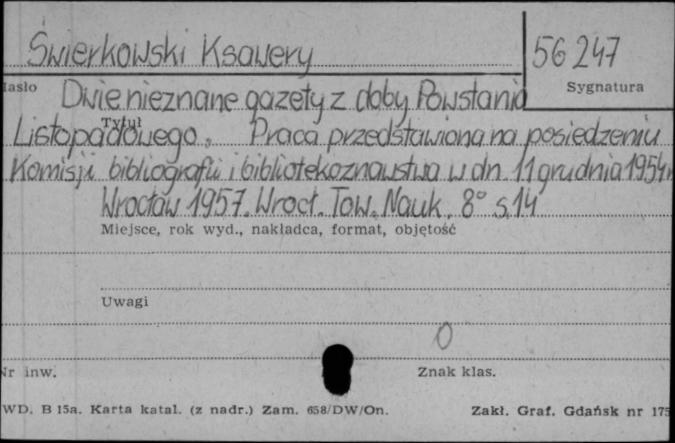 Świerkowski Ksawery
56 247
Hasło
Sygnatura
Dwie nieznane gazety z doby Powstania
Tytuł
Listopadowego. Praca przedstawiona na posiedzeniu
Komisji bibliografii i bibliotekoznawstwa w dn. 11 grudnia 1954 r
Wrocław 1957. Wrocł. Tow. Nauk. 8° s. 14
Miejsce, rok wyd., nakładca, format, objętość
Uwagi
0
Nr inw.
Znak klas.
WD. B 15a. Karta katal. (z nadr.) Zam. 658/DW/On.
Zakł. Graf. Gdańsk nr 175